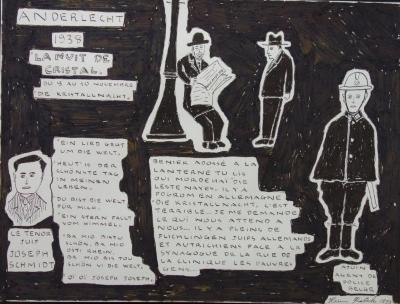 ANDERLECHT
1938
LA NUIT DE
CRISTAL.
DU 9 AU 10 NOVEMBRE
DE KRISTALLNACHT.
"EIN LIED GEHT
UM DIE WELT.
HEUT' IS DER
SCHÖNSTE TAG
IN MEINEN
LEBEN.
DU BIST DIE WELT
FÜR MICH.
"EIN STERN FALLT
VOM HIMMEL.
BRA MIR BISTU
SCHÖN, BA MIR
OST, KHEIN
BA MIR BIS TOU
SCHÖN VI DIE WELT.
OÏ OÏ JOSEPH JOSEPH.
LE TENOR
JUIF
JOSEPH
SCHMIDT
BENIEK ADOSSÉ A LA
LANTERNE TU LIS
OUI MORDEHAÏ "DIE
LESTE NAYES. IL Y A
POGROM EN ALLEMAGNE
"DIE KRISTALLNACHT, C'EST
TERRIBLE. JE ME DEMANDE
LE QUI NOUS ATTEND A
NOUS. IL Y A PLEINS DE
FLICHLINGEN JUIFS ALLEMANDS
ET AUTRICHIENS FACE A LA
SYNAGOGUE DE LA RUE DE
LA CLINIQUE LES PAUVRES
GENS...
AGENT DE
POLICE
BELGE